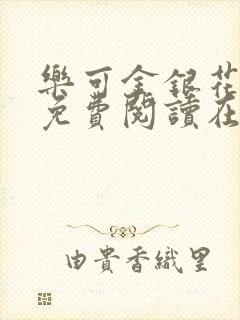 樂可金銀花
免費閱讀在
由貴香織里